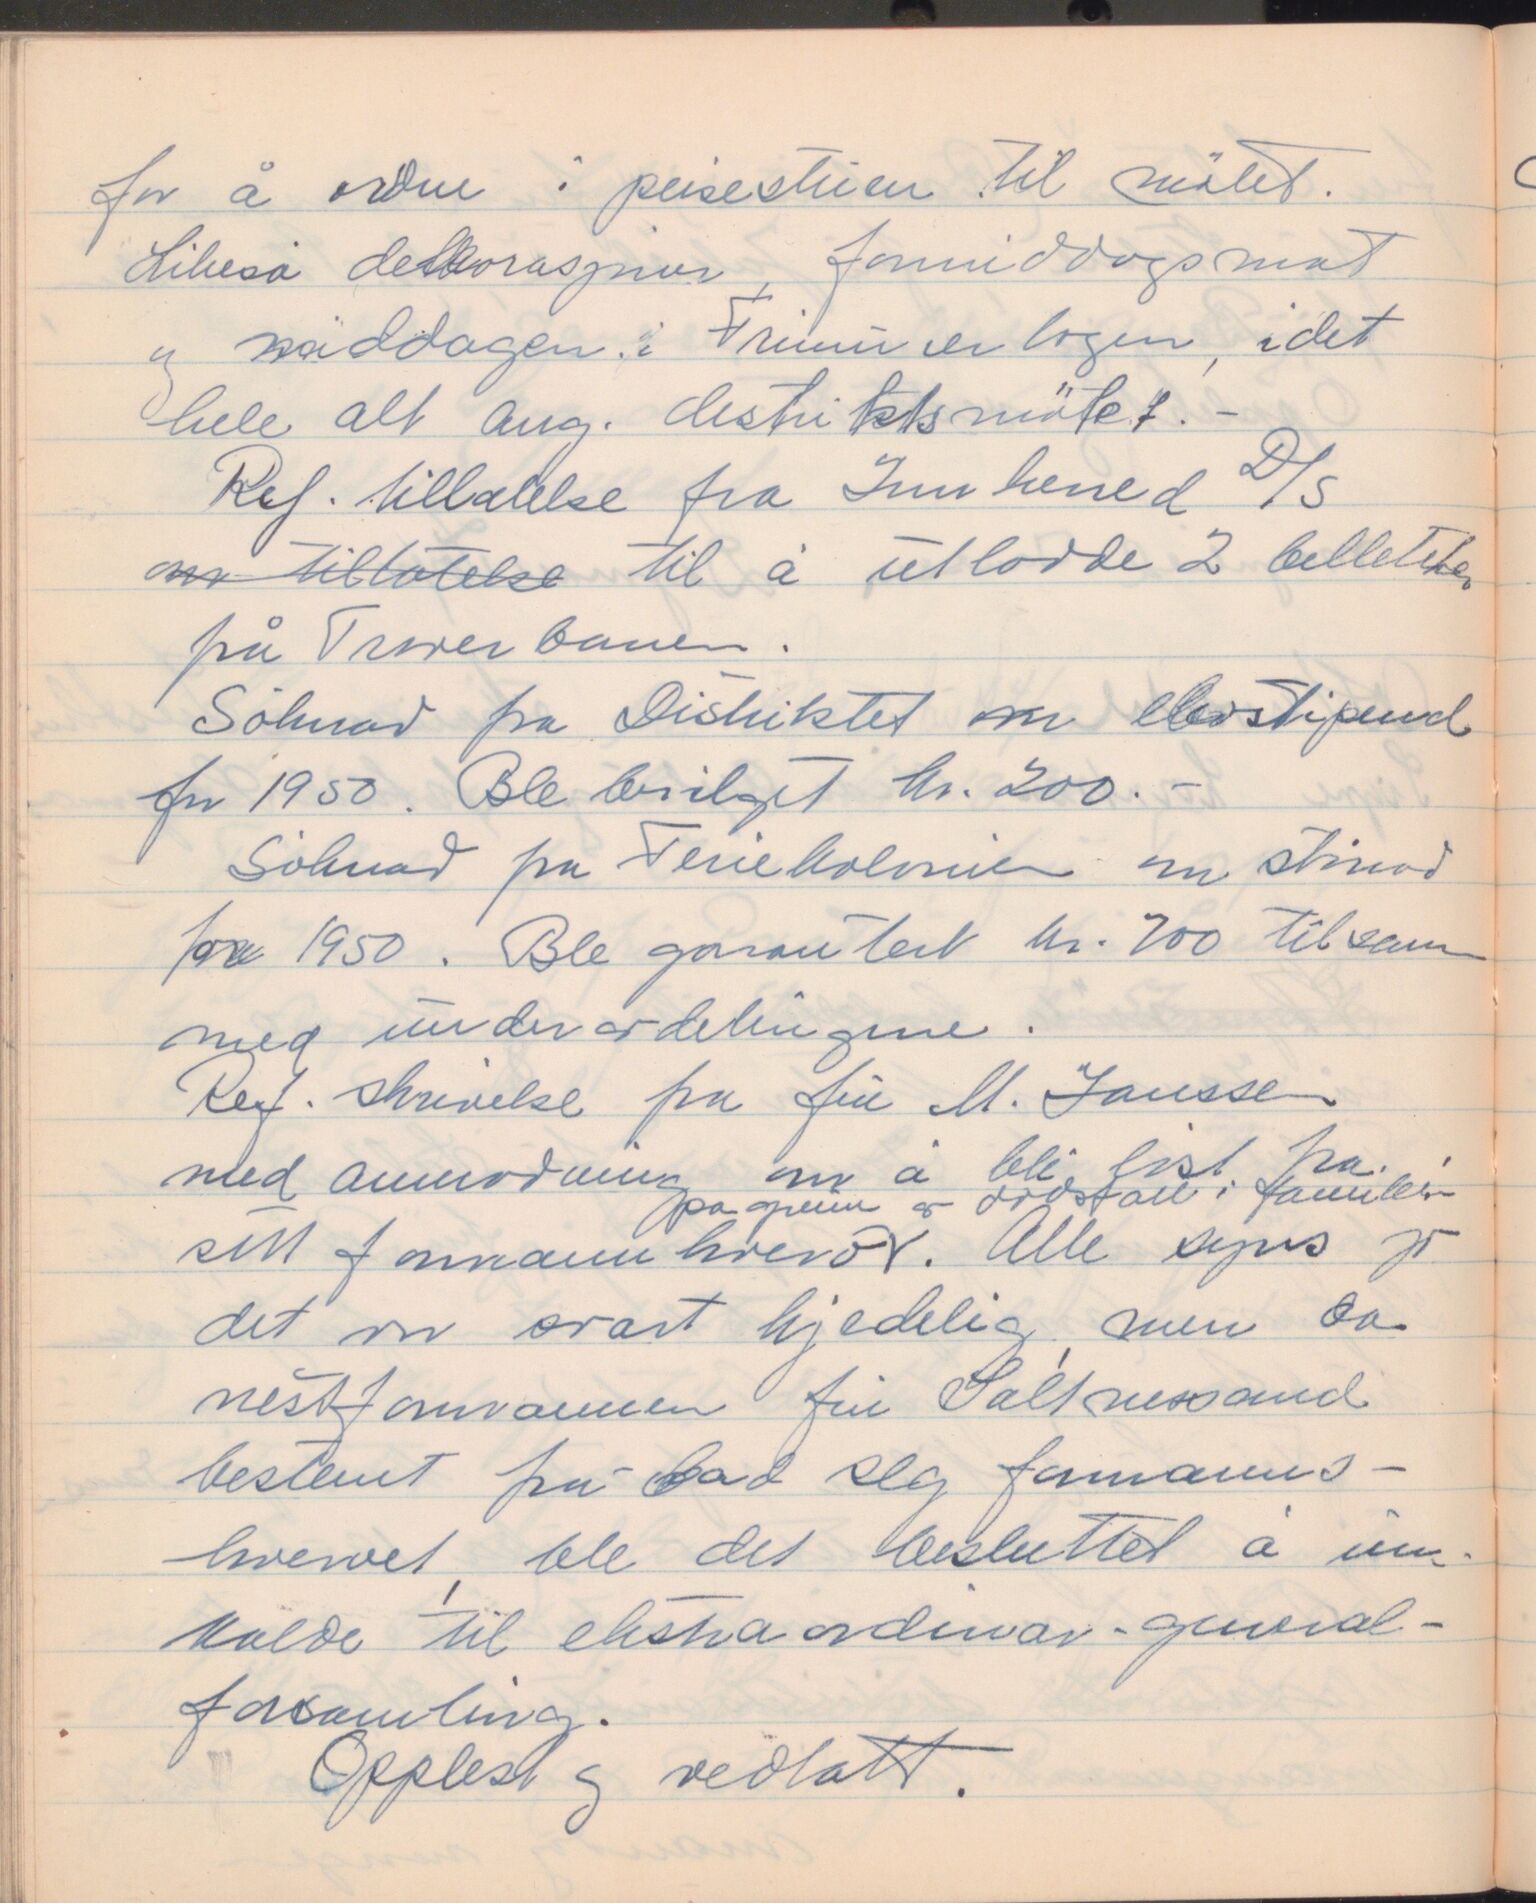 for å ordne i peisestuen til møtet.
Likeså dekorasjoner, formiddagsmat
og middagen i Frimurerlogen, idet
hele alt ang. distriktsmøtet. -
Ref. tillatelse fra Innherred D/S
om tillatelse til å utlodde 2 billetter
på Traverbanen.
Søknad fra Distriktet om elevstipend
for 1950. Ble bevilget kr. 200. -
Søknad fra Feriekolonien om stønad
for 1950. Ble garantert kr. 700 tilsam
med underavdelingene.
Ref. skrivelse fra fru M. Janssen
med anmodning om å bli løst fra
på grunn av dødsfall i familien
sitt formannhverv. Alle syns jo
det var svært kjedelig, men da
nestformannen fru Saltnessand
bestemt fra-bad seg formanns-
hvervet, ble det besluttet å inn-
kalde til ekstraordinær-general-
forsamling.
Opplest og vedtatt.